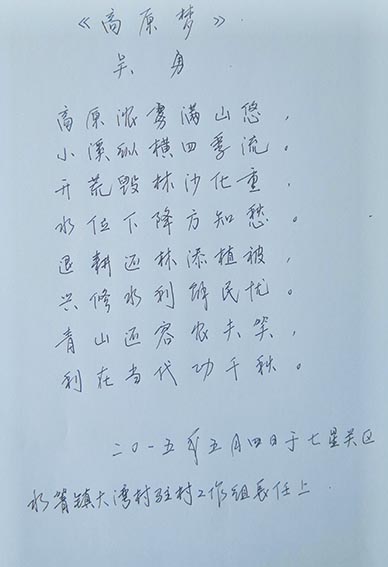 《高原梦》
吴勇
高原浓雾满山悠，
小溪纵横四季流。
开荒毁林沙化重，
水位下降方知愁。
退耕还林添植被，
兴修水利解民忧。
青山还容农夫笑，
利在当代功千秋。
二〇一五年五月四日于七星关区
水箐镇大湾村驻村工作组长任上.